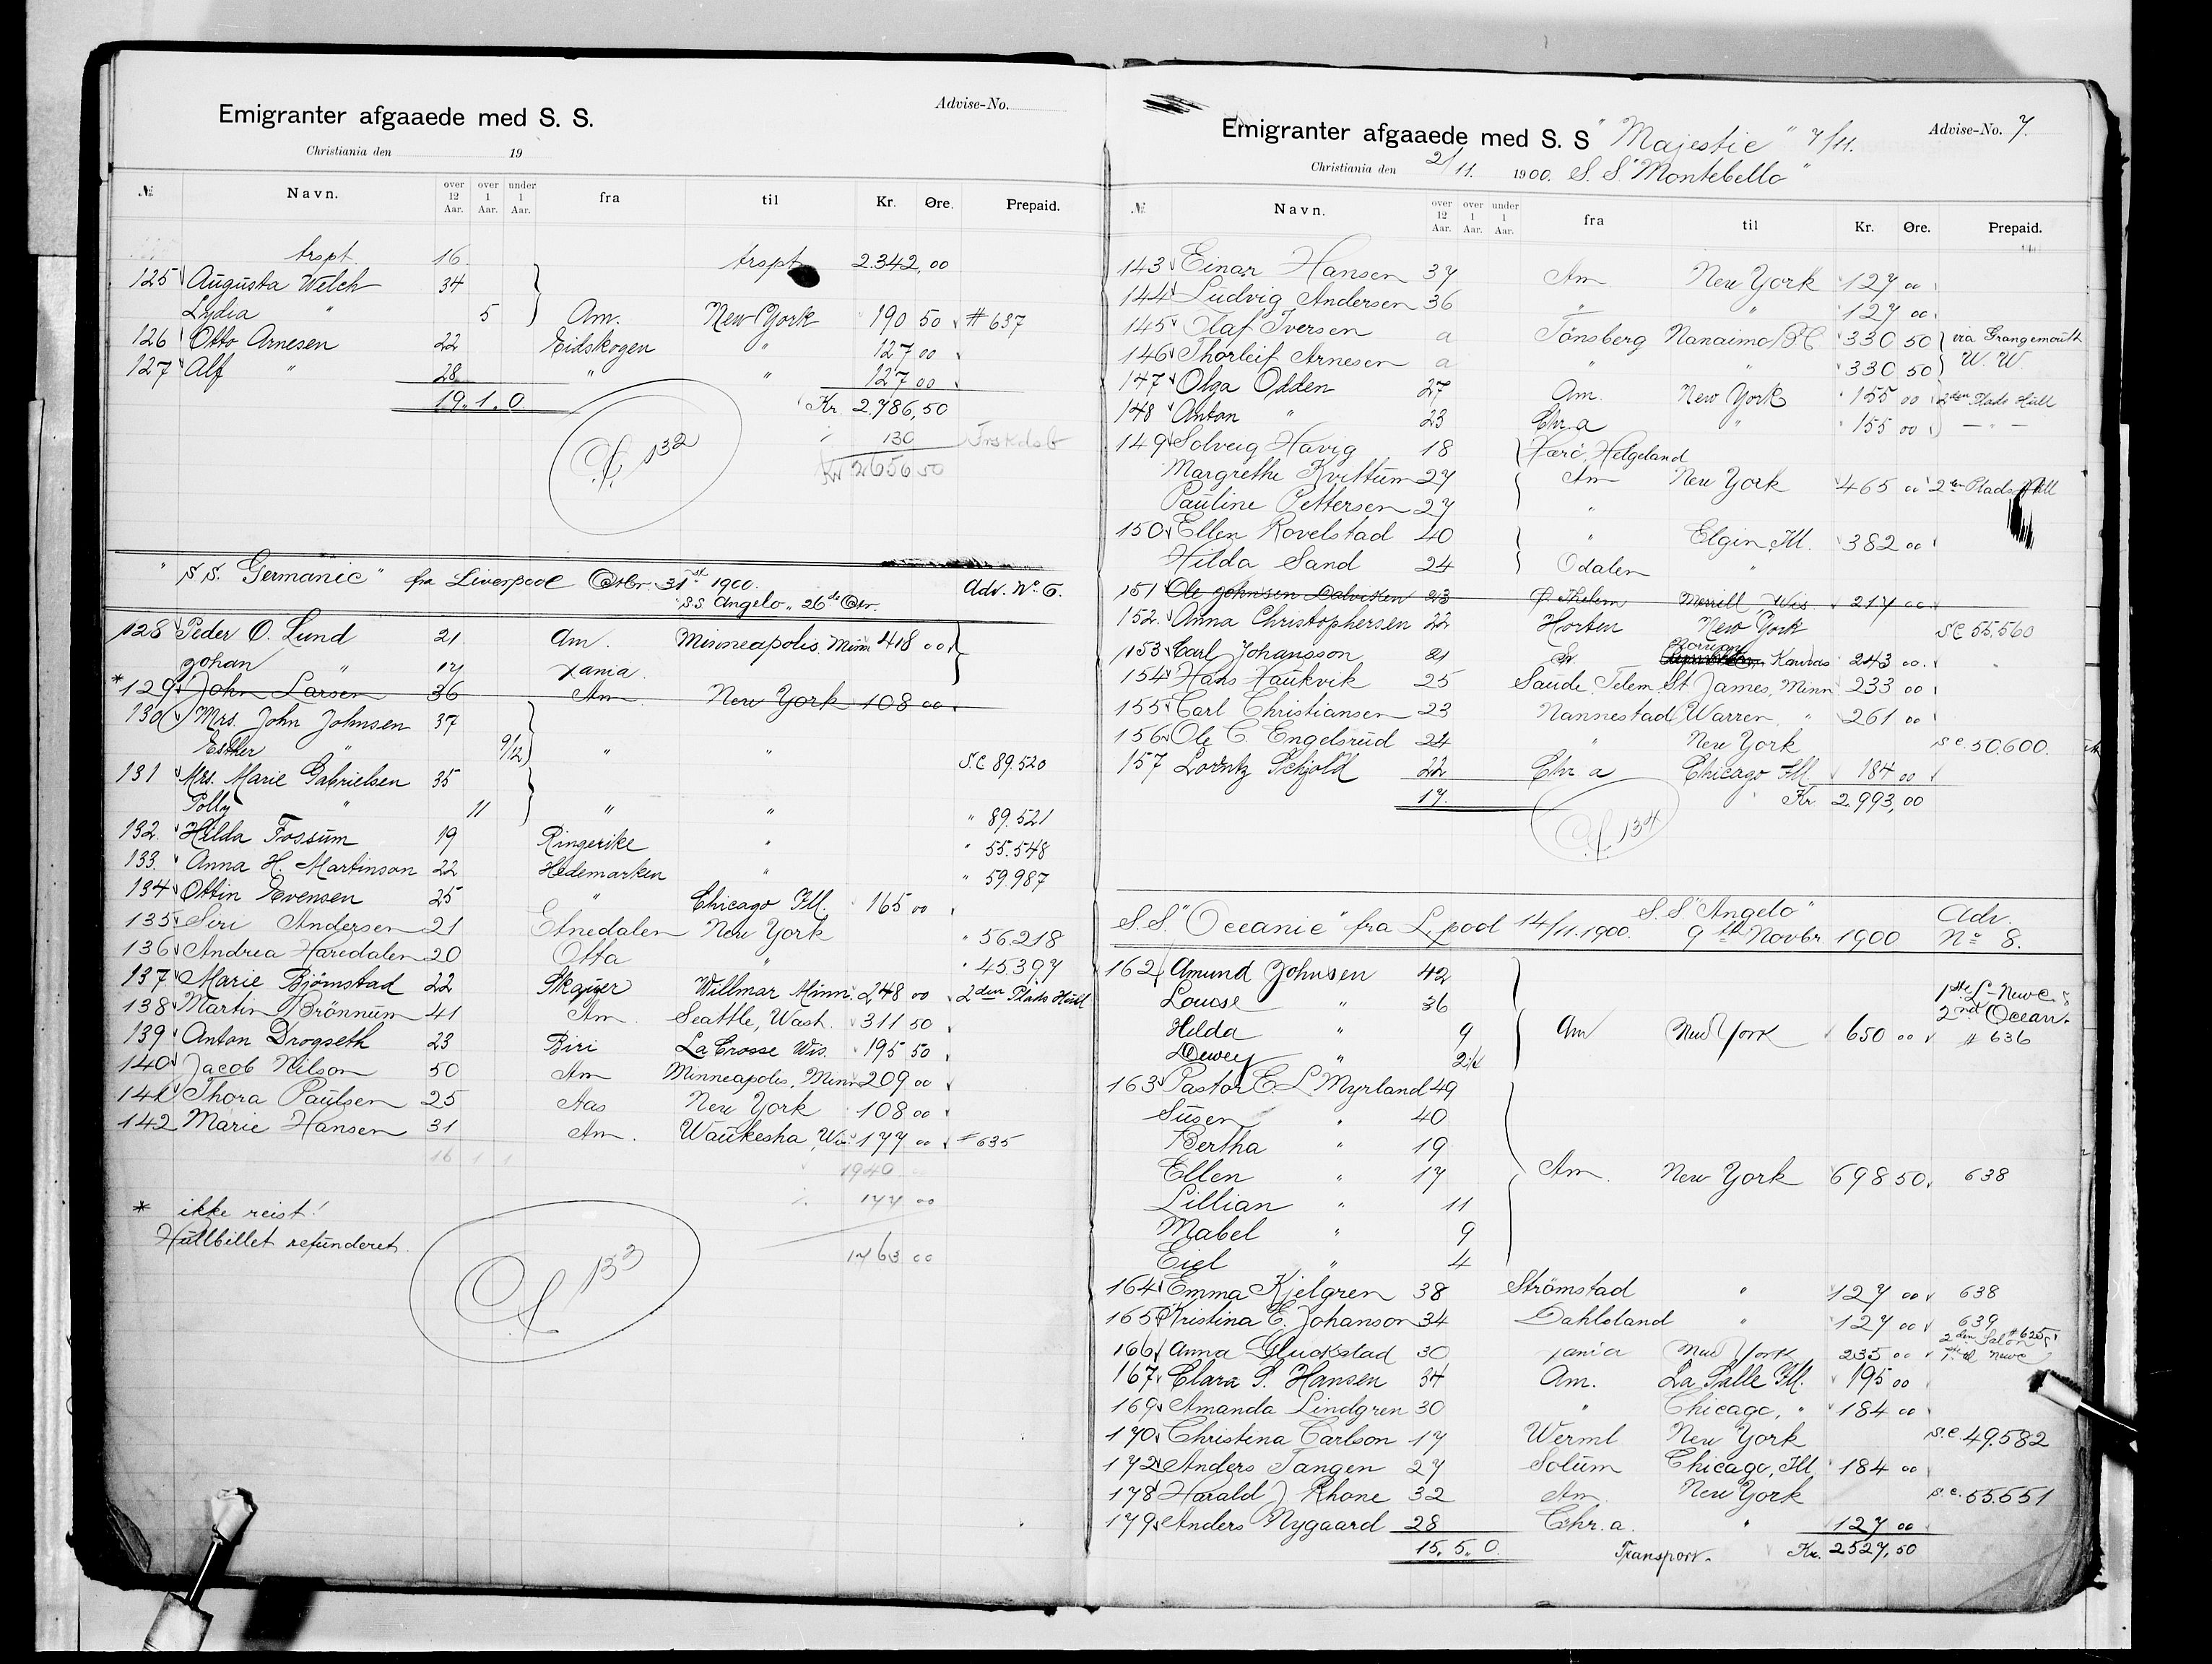 Advise-No.
Emigranter afgaaede med S. S.
Christiania den 19
№ Navn. over 12 Aar. over 1 Aar. under 1 Aar. fra til Kr. Øre. Prepaid.
trspt. 16 trspt 2.342,00
125 Augusta Welch 34
Lydia " 5 Am. New York 190 50 # 637
126 Otto Arnesen 22 Eidskogen " 127 00
127 Alf " 28 " " 127 00
19. 1. 0. Kr. 2.786,50
132 130
Kr 2656 50
" S.S. Germanic" fra Liverpool Octbr. 31st 1900. Adv. No. 6.
S.S Angelo 26de Oct.
128 Peder O. Lund 21 Am. Minneapolis, Minn 418 00
Johan " 17 Xania
* 129 John Larsen 36 Am New York 108 00
130 Mrs. John Johnsen 37
Esther " 9/12 " " S.C 89.520
131 Mrs. Marie Gabrielsen 35
Polly " 11 " " " 89.521
132 Hilda Fossum 19 Ringerike " " 55.548
133 Anna H. Martinson 22 Hedemarken " " 59.987
134 Ottin Evensen 25 " Chicago Ill. 165 00
135 Siri Andersen 21 Etnedalen New York " 56.218
136 Andrea Haredalen 20 Otta " " 45.397
137 Marie Bjørnstad 22 Skajer Willmar Minn. 248 00 2den Plads Hull
138 Martin Brönnum 41 Am Seattle, Wash. 311 50
139 Anton Drogseth 23 Biri La Crosse Wis. 195 50
140 Jacob Nilson 50 Am Minneapolis, Minn 209 00
141 Thora Paulsen 25 Aas New York 108 00
142 Marie Hansen 31 Am. Waukesha, Wis. 177 00 # 635
16 1 1 1940
177 00
* ikke reist!
Hullbillet refunderet.
1763 00
133
Emigranter afgaaede med S. S "Majestic" 7/11. Advise-No. 7.
Christiania den 2/11. 1900. S. S. "Montebello"
№ Navn. over 12 Aar. over 1 Aar. under 1 Aar. fra til Kr. Øre. Prepaid.
143 Einar Hansen 37 Am New York 127 00
144 Ludvig Andersen 36 " " 127 00
145 Olaf Iversen a Tönsberg Nanaimo B.C 330 50 via Grangemouth
146 Thorleif Arnesen a " " 330 50 W. W.
147 Olga Odden 27 Am. New York 155 00 2den Plads Hull
148 Anton " 23 Chr.a " 155 00 — " —
149 Solveig Havig 18 Færö, Helgeland
Margrethe Kvittum 27 Am New York 465 00 2den Plads Hull
Pauline Pettersen 27 "
150 Ellen Rovelstad 40 " Elgin, Ill. 382 00
Hilda Sand 24 Odalen "
151 Ole Johnsen Dalviken 23 Ö. Thelem. Merrill, Wis. 217 00
152 Anna Christophersen 22 Horten New York S.C 55.560
153 Carl Johansson 21 Sv. Kansas 243 00
154 Hans Haukvik 25 Saude, Telem. St. James, Minn 233 00
155 Carl Christiansen 23 Nannestad Warren, " 261 00
156 Ole C. Engelsrud 24 " New York S.C. 50.600.
157 Lorntz Schjold 22 Chr a Chicago Ill. 184 00
17. Kr 2.993,00
134
S.S. "Oceanic" fra L.pool 14/11.1900. S.S. "Angelo" 9th Novbr. 1900 Adv. No 8.
162 Amund Johnsen 42
Louise " 36 1ste L-Newc.
2nd Ocean.
Hilda " 9 Am New York 650 00 # 636
Dewey " 2½
163 Pastor E. L Myrland 49
Susen " 40
Bertha " 19
Ellen " 17 Am. New York 698 50 638
Lillian " 11
Mabel " 9
Eiel " 4
164 Emma Kjelgren 38 Strömstad " 127 00 638
165 Kristina E. Johanson 34 Dahlsland " 127 00 639
166 Anna Gluckstad 30 Xania New York 235 00 2den Salon #625
167 Clara S. Hansen 34 Am. La Salle Ill. 195 00
169 Amanda Lindgren 30 " Chicago, " 184 00
170 Christina Carlson 17 Werml New York S.C. 49.582
172 Anders Tangen 27 Solum Chicago, Ill 184 00
178 Harald J Rhone 32 Am New York S.C. 55.651
179 Anders Nygaard 28 Chr.a. " 127 00
15. 5. 0. Transport. Kr. 2527,50